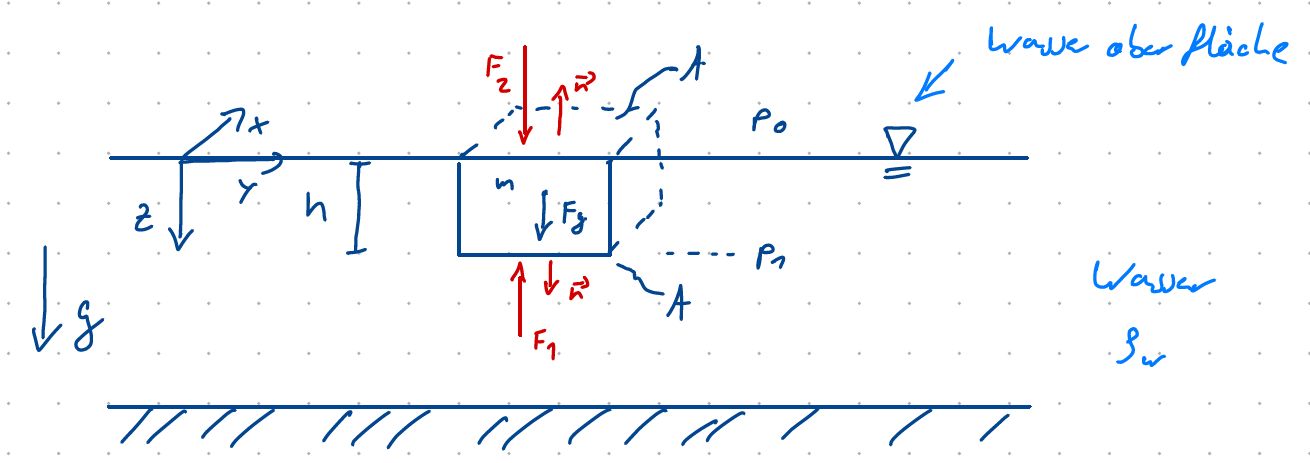 Wasseroberfläche
F₂
n⃗
A
P₀
x
y
z
h
m
F_g
P₁
n⃗
A
F₁
g
Wasser
ρ_w